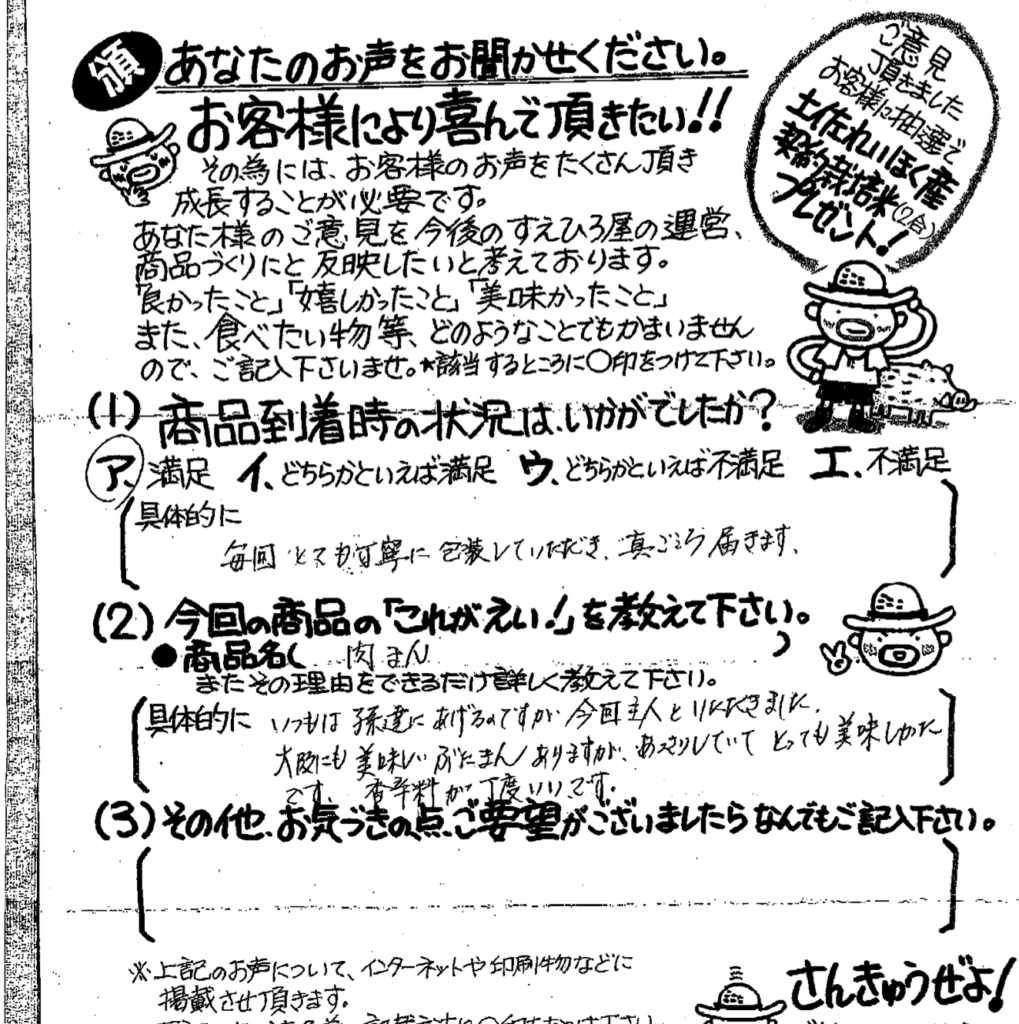 頒 あなたのお声をお聞かせください。
お客様により喜んで頂きたい!!
その為には、お客様のお声をたくさん頂き
成長することが必要です。
あなた様のご意見を今後のすえひろ屋の運営、
商品づくりにと反映したいと考えております。
「良かったこと」「嬉しかったこと」「美味かったこと」
また、食べたい物等、どのようなことでもかまいません
ので、ご記入下さいませ。★該当するところに○印をつけて下さい。
ご意見
頂きました
お客様に抽選で
土佐れいほく産
契約栽培米(2合)
プレゼント!
(1)商品到着時の状況は、いかがでしたか?
ア、満足 イ、どちらかといえば満足 ウ、どちらかといえば不満足 エ、不満足
具体的に
毎回 とても丁寧に包装していただき、真ごころ届きます、
(2)今回の商品の「これがえい!」を教えて下さい。
●商品名( 肉まん )
またその理由をできるだけ詳しく教えて下さい。
具体的に いつもは孫達にあげるのですが今回主人といただきました、
大阪にも美味しいぶたまんありますが、あっさりしていて とっても美味しかった
です、 香辛料が丁度いいです。
(3)その他、お気づきの点、ご要望がございましたらなんでもご記入下さい。
※上記のお声について、インターネットや印刷物などに
掲載させ頂きます。
さんきゅうぜよ!